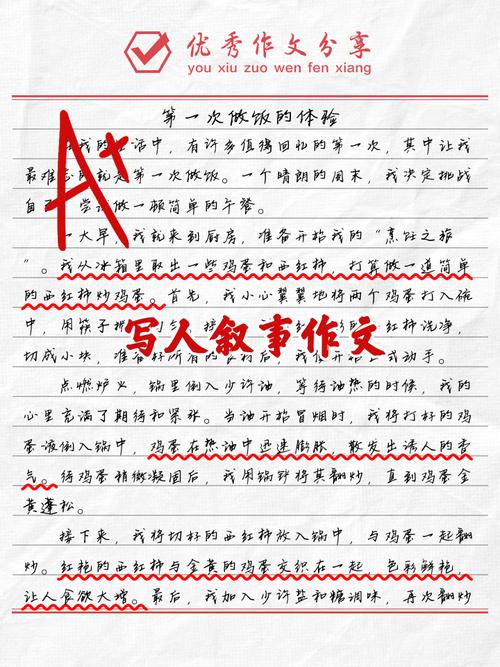 优秀作文分享
you xiu zuo wen fen xiang
A+
第一次做饭的体验
我的 活中，有许多值得回忆的第一次，其中让我
最难 的就是第一次做饭。一个晴朗的周末，我决定挑战
自 尝试做一顿简单的午餐。
一大早，我就来到厨房，准备开始我的“烹饪之旅
”。我从冰箱里取出一些鸡蛋和西红柿，打算做一道简单
的西红柿炒鸡蛋。首先，我小心翼翼地将两个鸡蛋打入碗
中，用筷子 红柿洗净，
写人叙事作文
切成小块，准备好所有的 后，我 动手。
点燃炉火，锅里倒入少许油，等待油热的时候，我的
心里充满了期待和紧张。当油开始冒烟时，我将打好的鸡
蛋液倒入锅中，鸡蛋在热油中迅速膨胀，散发出诱人的香
气。待鸡蛋稍微凝固后，我用锅铲将其翻炒，直到鸡蛋金
黄蓬松。
接下来，我将切好的西红柿放入锅中，与鸡蛋一起翻
炒。红艳的西红柿与金黄的鸡蛋交织在一起，色彩鲜艳，
让人食欲大增。最后，我加入少许盐和糖调味，再次翻炒